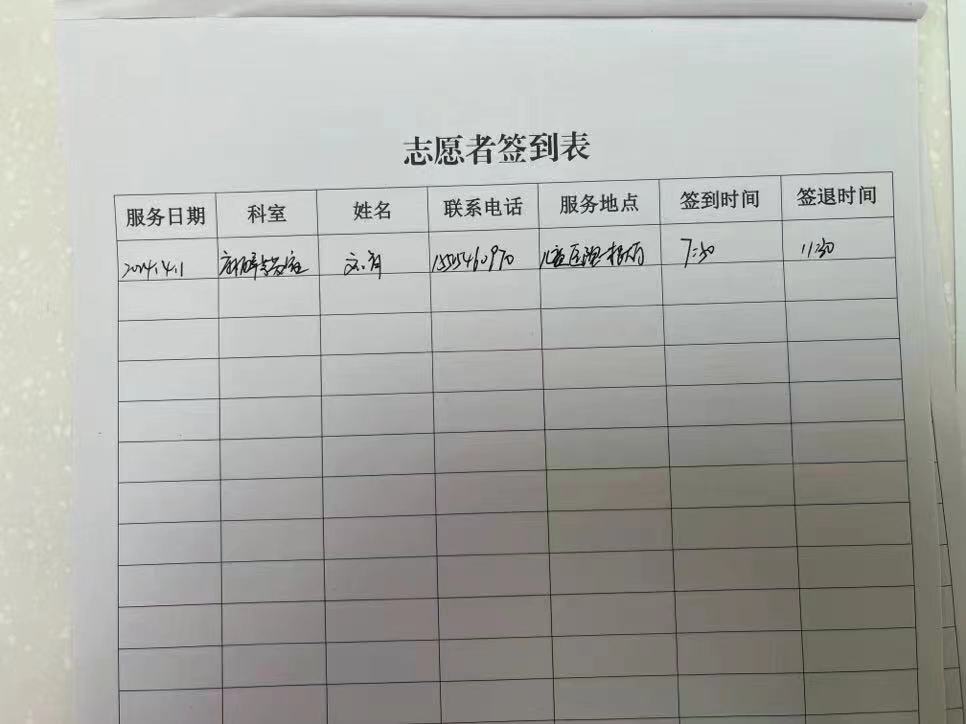 志愿者签到表
服务日期 科室 姓名 联系电话 服务地点 签到时间 签退时间
2024.4.1 7:30 11:30